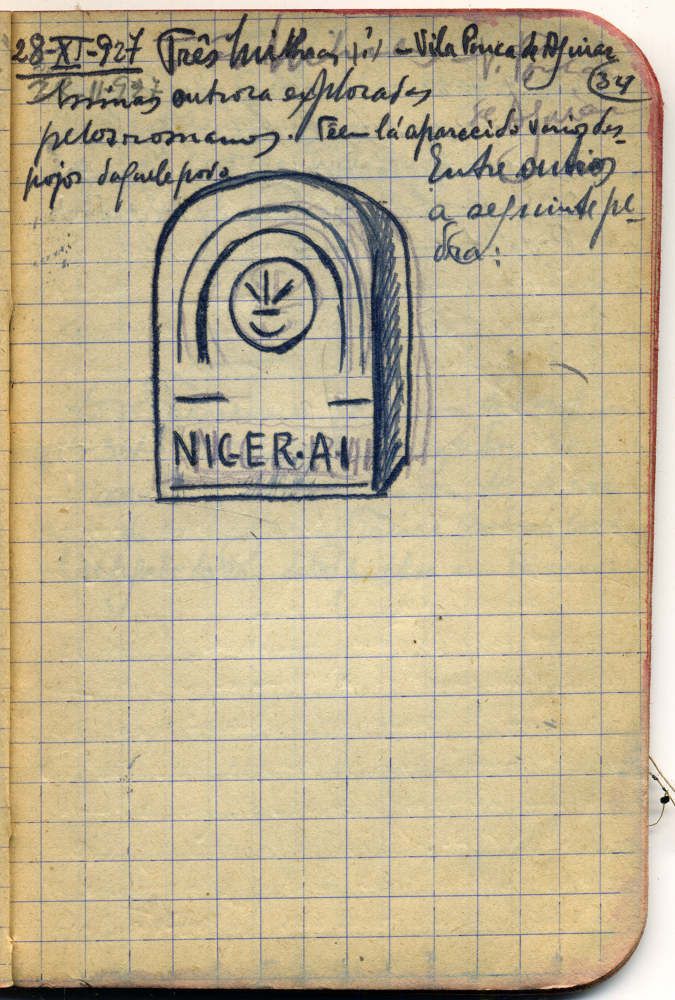 28-XI-927 Três Minas (?) - Vila Pouca de Aguiar
34
minas outrora exploradas
pelos romanos. Teem lá aparecido varios des-
pojos daquele povo
Entre outros
a seguinte pe-
dra:
NIGER·AI